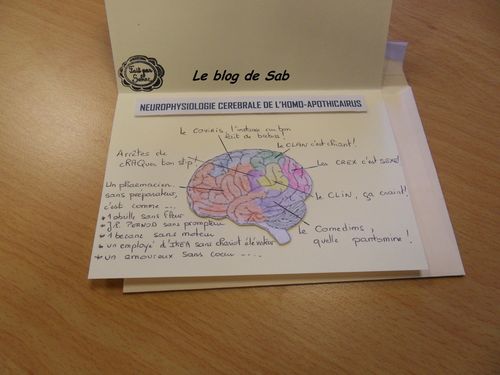 Fait par
Le blog de Sab
NEUROPHYSIOLOGIE CEREBRALE DE L'HOMO-APOTHICAIRUS
le COVIRIS, l'instance au bon
lait de brebis!
le CLAN c'est chiant!
Arrêtes de
cRAQuer ton slip
Les CREX c'est SEXE!
Un pharmacien
sans préparateur,
c'est comme ...
le CLIN, ça craint!
* 1 abeille sans fleur
* J.P. PERNOD sans prompteur
* 1 bécane sans moteur
* un employé d'IKEA sans chariot élévateur
* un amoureux sans coeur ....
le Comedims,
quelle pantomime!